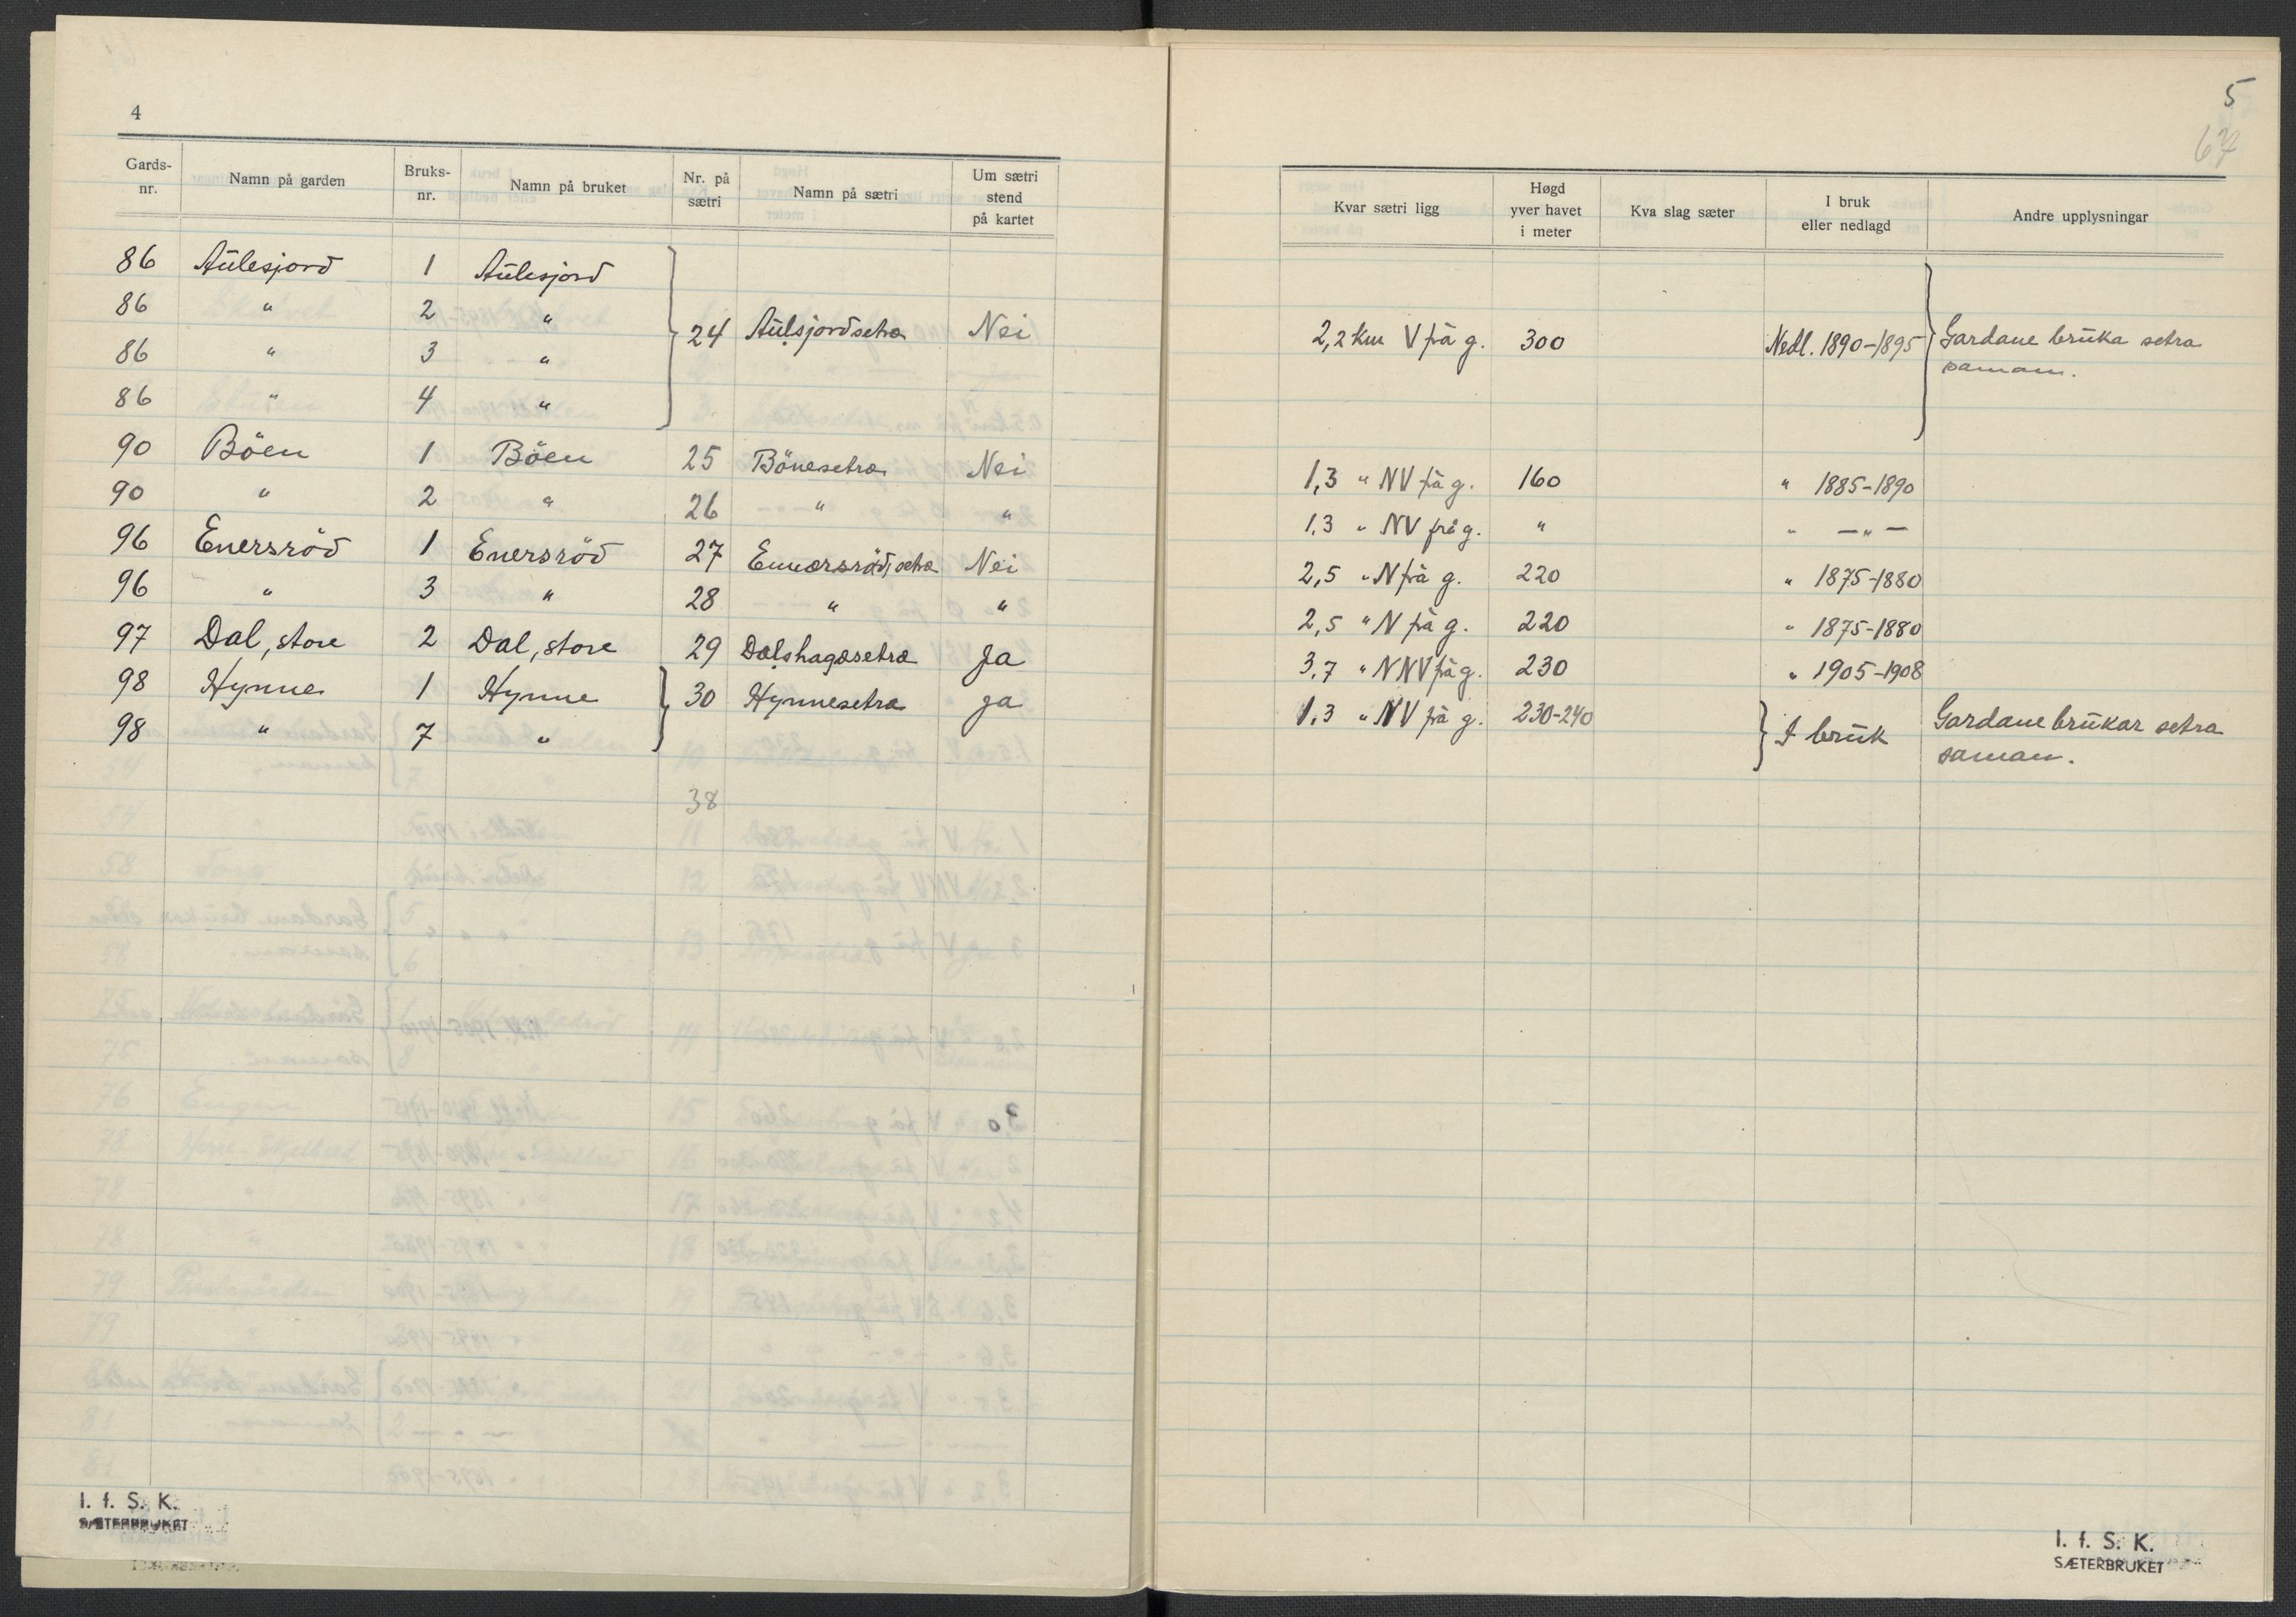 4
Gards-nr. Namn på garden Bruks-nr. Namn på bruket Nr. på sætri Namn på sætri Um sætri stend på kartet
86 Aülesjord 1 Aülesjord
86 " 2 "
24 Aülsjordsetra Nei
86 " 3 "
86 " 4 "
90 Böen 1 Böen 25 Bönesetra Nei
90 " 2 " 26 " "
96 Enersröd 1 Enersröd 27 Ennersrödsetra Nei
96 " 3 " 28 " "
97 Dal, store 2 Dal, store 29 Dalshagasetra Ja
98 Hynne 1 Hynne 30 Hynnesetra Ja
98 " 7 "
38
I. f. S. K.
SÆTERBRUKET
5
67
Kvar sætri ligg Høgd yver havet i meter Kva slag sæter I bruk eller nedlagd Andre upplysningar
2,2 km V frå g. 300 Nedl. 1890-1895 Gardane brüka setra
saman.
1,3 " NV frå g. 160 " 1885-1890
1,3 " NV frå g. " " — " —
2,5 " N frå g. 220 " 1875-1880
2,5 " N frå g. 220 " 1875-1880
3,7 " NNV frå g. 230 " 1905-1908
1,3 " NV frå g. 230-240 I brük Gardane brükar setra
saman.
I. f. S. K.
SÆTERBRUKET